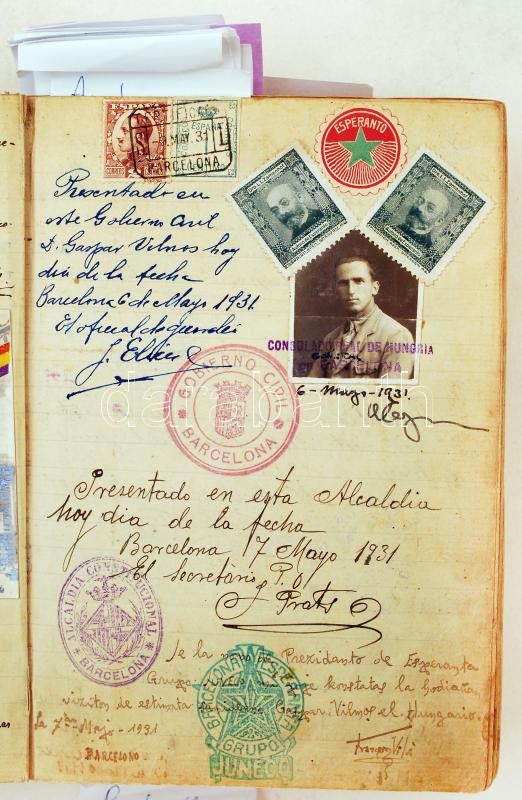 ESPAÑA
CORREOS
ESPAÑA
MAY. 31
BARCELONA
ESPERANTO
Presentado en
este Gobierno Civil
D. Gaspar Vilmos hoy
dia de la fecha
Barcelona 6 de Mayo 1931.
El oficial de guardia
CONSULADO REAL DE HUNGRIA
BARCELONA
6 - Mayo - 1931.
GOBIERNO CIVIL
BARCELONA
darabanth
Presentado en esta Alcaldia
hoy dia de la fecha
Barcelona 7 Mayo 1931
El secretario P. O.
J. Prats
ALCALDIA CONSTITUCIONAL
BARCELONA
Je la nomo de Prezidanto de Esperanta
Grupo "Juneco" mi konstatas la hodiaŭan
viziton de estimata Gaspar Vilmos el Hungario.
la 7an Majo - 1931
BARCELONO
BARCELONA ESPERANTA
GRUPO
JUNECO